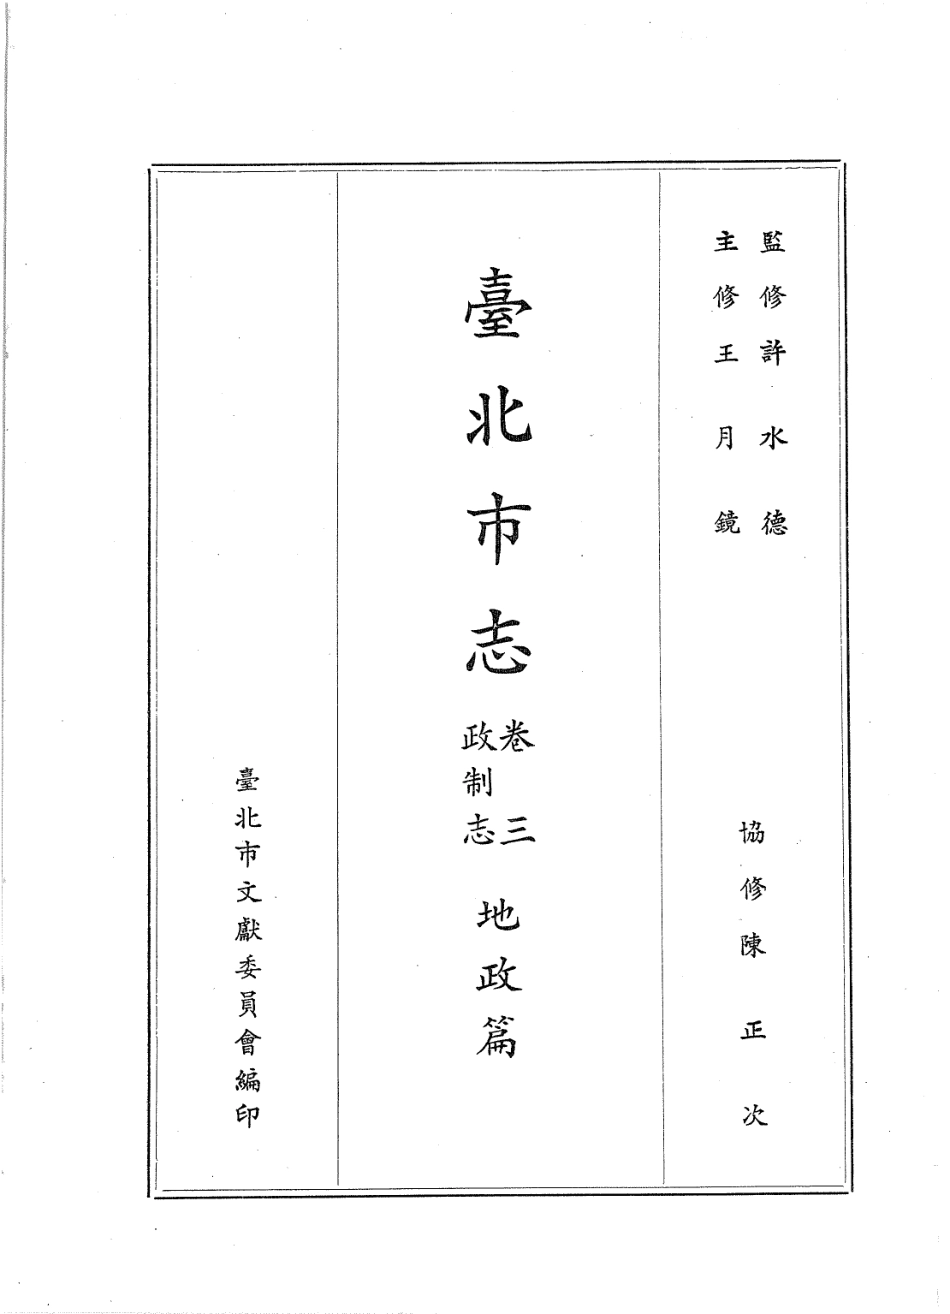 監修許水德
主修王月鏡
協修陳正次
臺北市志
卷三
政制志
地政篇
臺北市文獻委員會編印